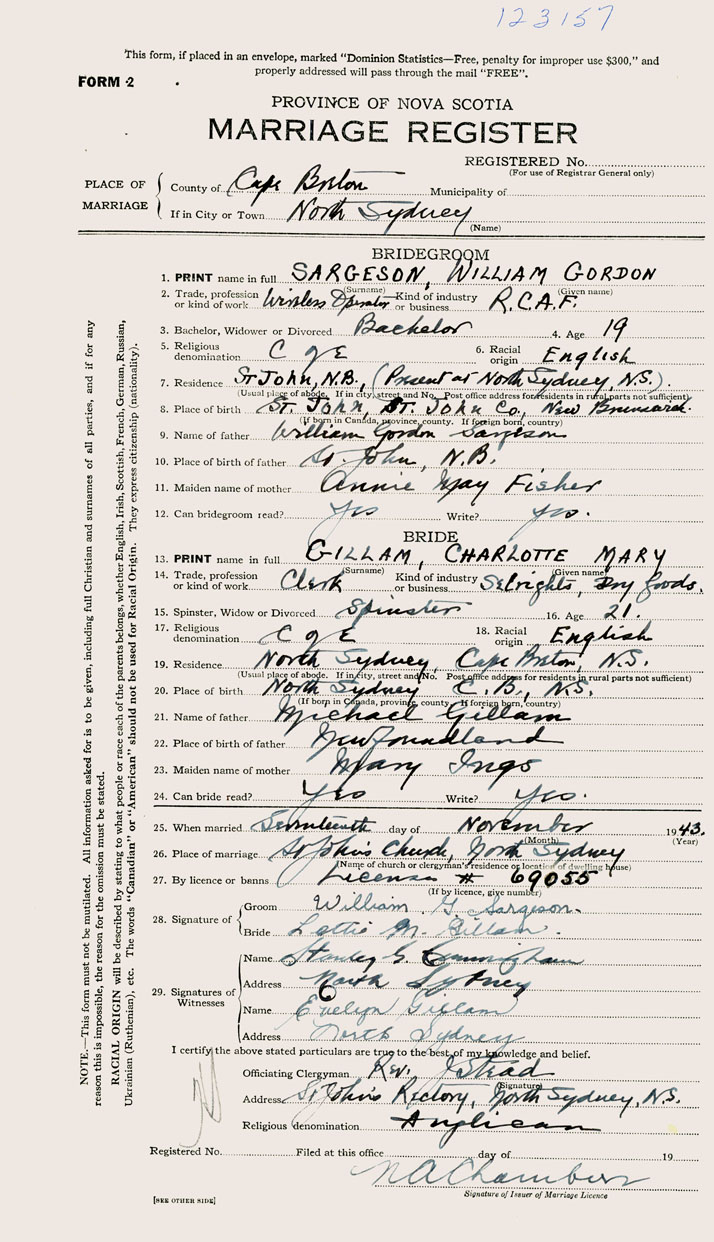 123157
This form, if placed in an envelope, marked "Dominion Statistics—Free, penalty for improper use $300," and
properly addressed will pass through the mail "FREE".
FORM 2
PROVINCE OF NOVA SCOTIA
MARRIAGE REGISTER
REGISTERED No.
(For use of Registrar General only)
PLACE OF MARRIAGE
County of Cape Breton Municipality of
If in City or Town North Sydney
(Name)
BRIDEGROOM
1. PRINT name in full SARGESON, WILLIAM GORDON
(Surname) (Given name)
2. Trade, profession or kind of work Wireless Operator Kind of industry or business R.C.A.F.
3. Bachelor, Widower or Divorced Bachelor 4. Age 19
5. Religious denomination C of E 6. Racial origin English
7. Residence St John, N.B., (Present at North Sydney, N.S.).
(Usual place of abode. If in city, street and No. Post office address for residents in rural parts not sufficient)
8. Place of birth St. John, St. John Co., New Brunswick.
(If born in Canada, province, county. If foreign born, country)
9. Name of father William Gordon Sargeson
10. Place of birth of father St. John, N.B.
11. Maiden name of mother Annie May Fisher
12. Can bridegroom read? Yes Write? Yes.
BRIDE
13. PRINT name in full GILLAM, CHARLOTTE MARY
(Surname) (Given name)
14. Trade, profession or kind of work Clerk Kind of industry or business Dry Goods.
15. Spinster, Widow or Divorced Spinster 16. Age 21.
17. Religious denomination C of E 18. Racial origin English
19. Residence North Sydney, Cape Breton, N.S.
(Usual place of abode. If in city, street and No. Post office address for residents in rural parts not sufficient)
20. Place of birth North Sydney C.B., N.S.
(If born in Canada, province, county. If foreign born, country)
21. Name of father Michael Gillam
22. Place of birth of father Newfoundland
23. Maiden name of mother Mary Ings
24. Can bride read? Yes Write? Yes.
25. When married Seventeenth day of November 1943.
(Month) (Year)
26. Place of marriage St John's Church, North Sydney
(Name of church or clergyman's residence or location of dwelling house)
27. By licence or banns License # 69055
(If by licence, give number)
28. Signature of
Groom William G Sargeson.
Bride Lottie M. Gillam.
29. Signatures of Witnesses
Name Stanley G. Cunningham
Address North Sydney
Name Evelyn Gillam
Address North Sydney
I certify the above stated particulars are true to the best of my knowledge and belief.
Officiating Clergyman Rev. J Stead
(Signature)
Address St John's Rectory, North Sydney, N.S.
Religious denomination Anglican
Registered No. Filed at this office day of 19
N A Chambers
Signature of Issuer of Marriage Licence
[SEE OTHER SIDE]
NOTE.—This form must not be mutilated. All information asked for is to be given, including full Christian and surnames of all parties, and if for any
reason this is impossible, the reason for the omission must be stated.
RACIAL ORIGIN will be described by stating to what people or race each of the parents belongs, whether English, Irish, Scottish, French, German, Russian,
Ukrainian (Ruthenian), etc. The words "Canadian" or "American" should not be used for Racial Origin. They express citizenship (nationality).